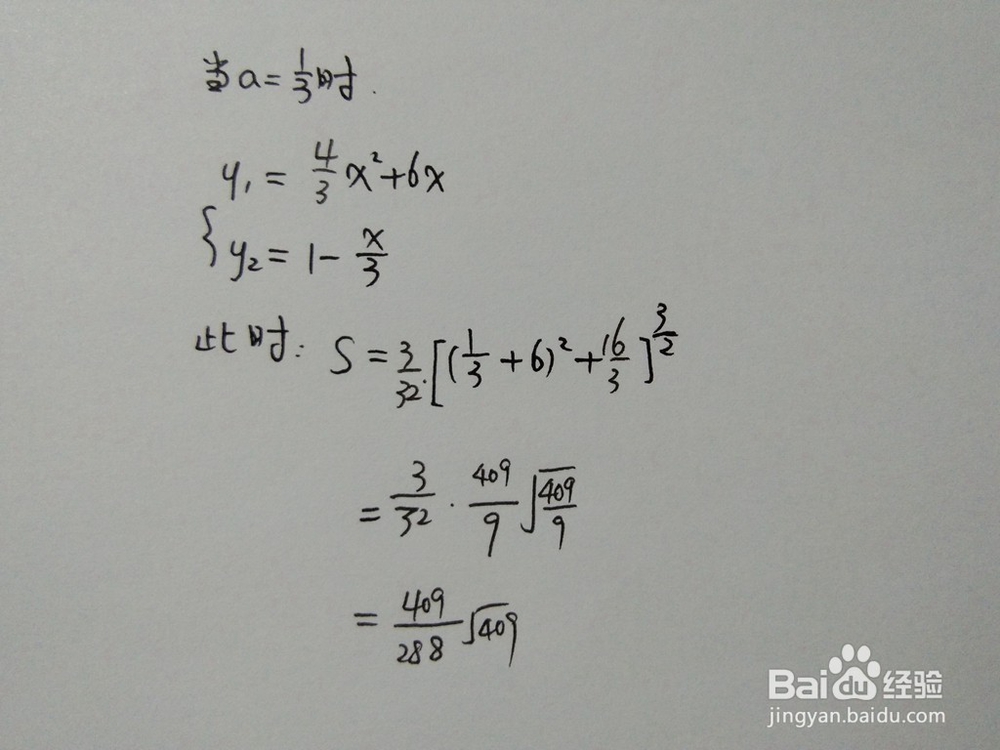 当a=1/3时.
y₁ = 4/3 x²+6x
{ y₂ = 1 - x/3
此时: S = 3/32·[(1/3+6)²+16/3]^(3/2)
= 3/32 · 409/9 √(409/9)
= 409/288 √409
Baidu经验
jingyan.baidu.com